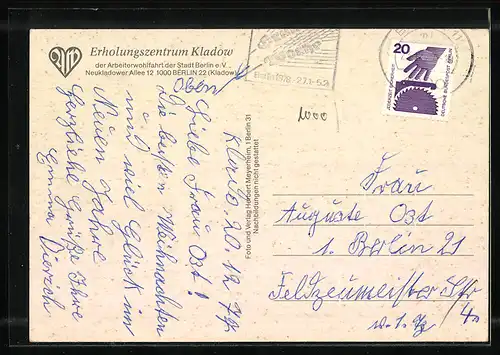 Erholungszentrum Kladow
der Arbeiterwohlfahrt der Stadt Berlin e.V.
Neukladower Allee 12 1000 BERLIN 22 (Kladow)
Oben
Klado. 20.12.77.
Liebe Frau Ost!
Die besten Weihnachten
und viel Glück im
Neuen Jahre
Herzliche Grüße Ihre
Emma Dierich
Foto und Verlag Herbert Meyerheim, 1 Berlin 31
Nachbildungen nicht gestattet
20
DEUTSCHE BUNDESPOST BERLIN
1000
Frau
Auguste Ost
1. Berlin 21
Feldzeumeister Str
40